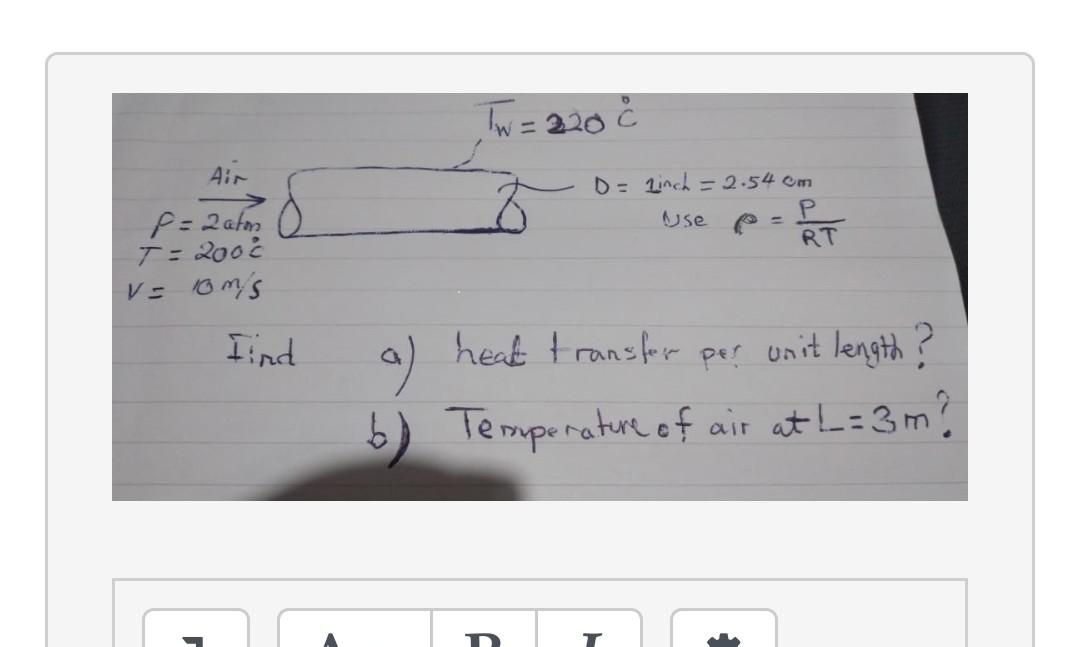 Tw = 220 °C
Air
D = 1inch = 2.54 cm
P = 2 atm
Use ρ = P / RT
T = 200°C
V = 10 m/s
Find a) heat transfer per unit length?
b) Temperature of air at L = 3 m?
A B I